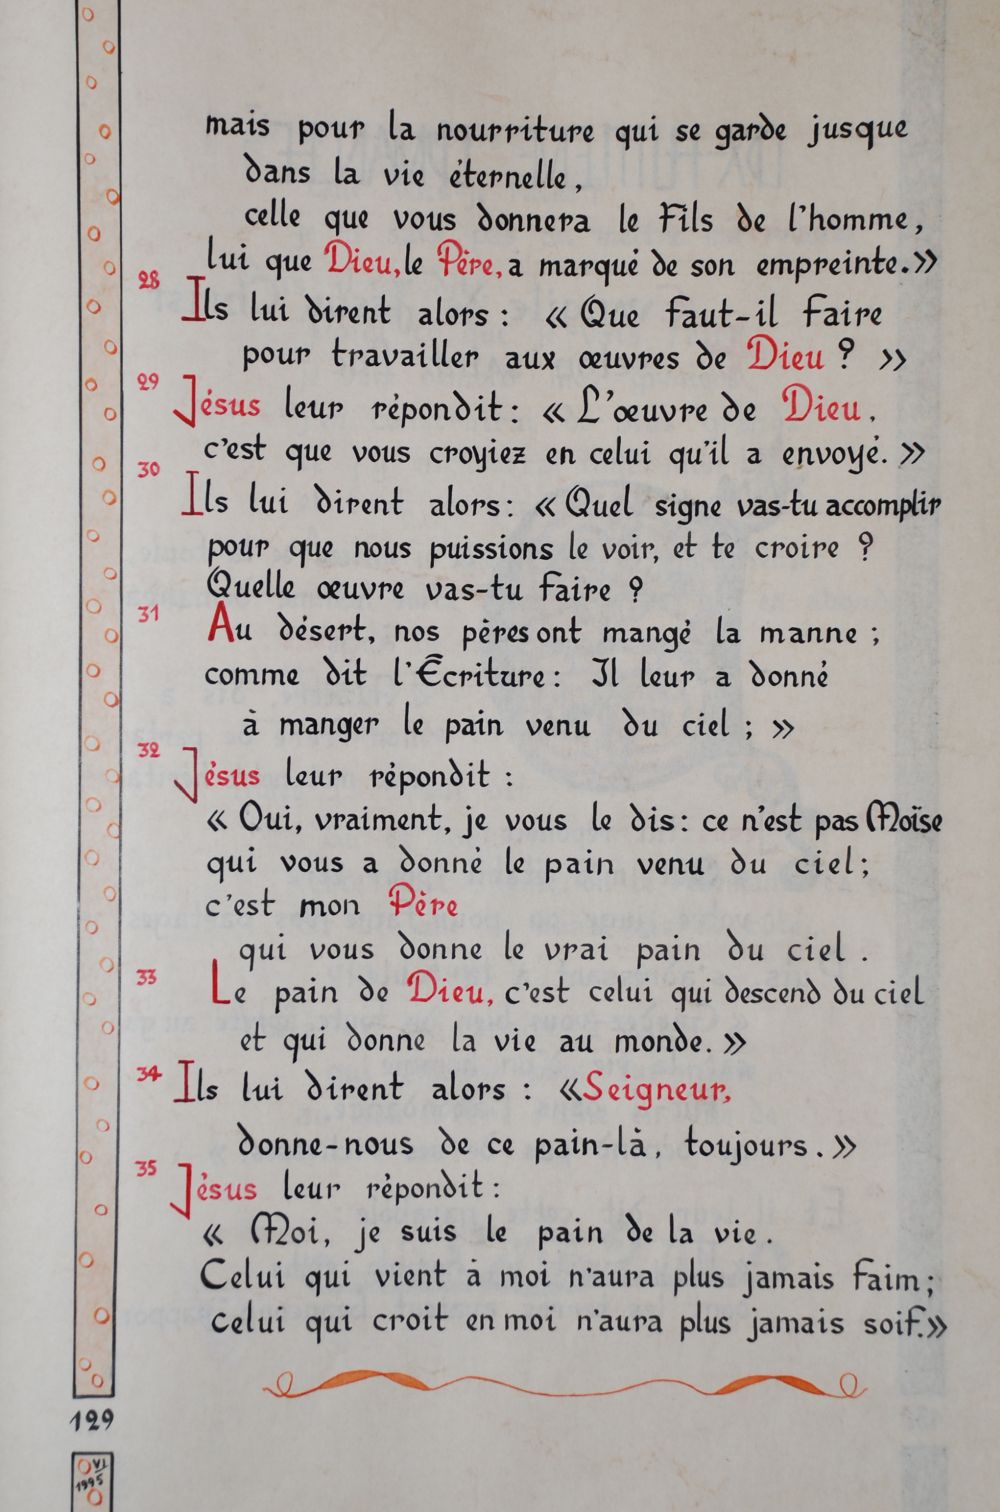 mais pour la nourriture qui se garde jusque
dans la vie éternelle,
celle que vous donnera le Fils de l'homme,
lui que Dieu, le Père, a marqué de son empreinte. »
28 Ils lui dirent alors : « Que faut-il faire
pour travailler aux œuvres de Dieu ? »
29 Jésus leur répondit : « L'œuvre de Dieu,
c'est que vous croyiez en celui qu'il a envoyé. »
30 Ils lui dirent alors : « Quel signe vas-tu accomplir
pour que nous puissions le voir, et te croire ?
Quelle œuvre vas-tu faire ?
31 Au désert, nos pères ont mangé la manne ;
comme dit l'Écriture : Il leur a donné
à manger le pain venu du ciel ; »
32 Jésus leur répondit :
« Oui, vraiment, je vous le dis : ce n'est pas Moïse
qui vous a donné le pain venu du ciel ;
c'est mon Père
qui vous donne le vrai pain du ciel.
33 Le pain de Dieu, c'est celui qui descend du ciel
et qui donne la vie au monde. »
34 Ils lui dirent alors : « Seigneur,
donne-nous de ce pain-là, toujours. »
35 Jésus leur répondit :
« Moi, je suis le pain de la vie.
Celui qui vient à moi n'aura plus jamais faim ;
celui qui croit en moi n'aura plus jamais soif. »
129
VI
1995